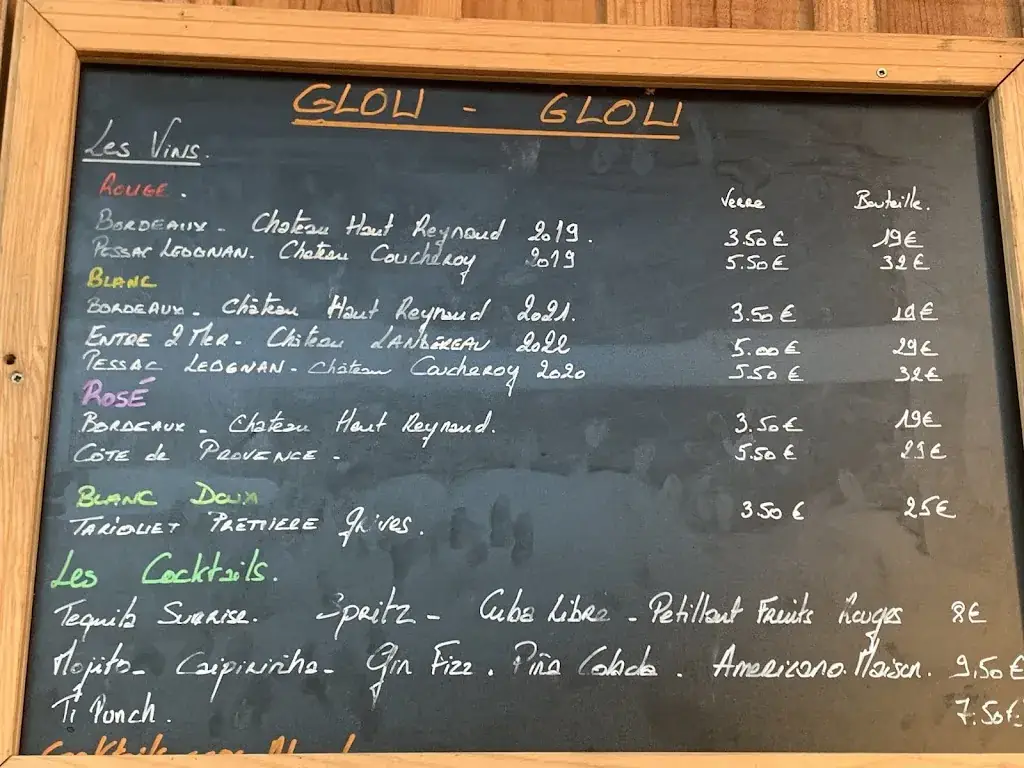 GLOU - GLOU
Les Vins.
ROUGE. Verre Bouteille.
BORDEAUX - Chateau Haut Reynaud 2019. 3.50€ 19€
PESSAC LEOGNAN. Chateau Coucheroy 2019 5.50€ 32€
BLANC
BORDEAUX - Château Haut Reynaud 2021. 3.50€ 19€
ENTRE 2 MER - Château LANDEREAU 2022 5.00€ 29€
PESSAC LEOGNAN - Château Coucheroy 2020 5.50€ 32€
ROSÉ
BORDEAUX - Chateau Haut Reynaud. 3.50€ 19€
CÔTE de PROVENCE - 5.50€ 29€
BLANC DOUX
TARIQUET PREMIERE Grives. 3.50€ 25€
Les Cocktails.
Tequila Sunrise. Spritz - Cuba Libre - Petillant Fruits Rouges 8€
Mojito - Caipirinha - Gin Fizz. Piña Colada. Americano Maison. 9,50€
Ti Punch. 7.50€
Cocktails